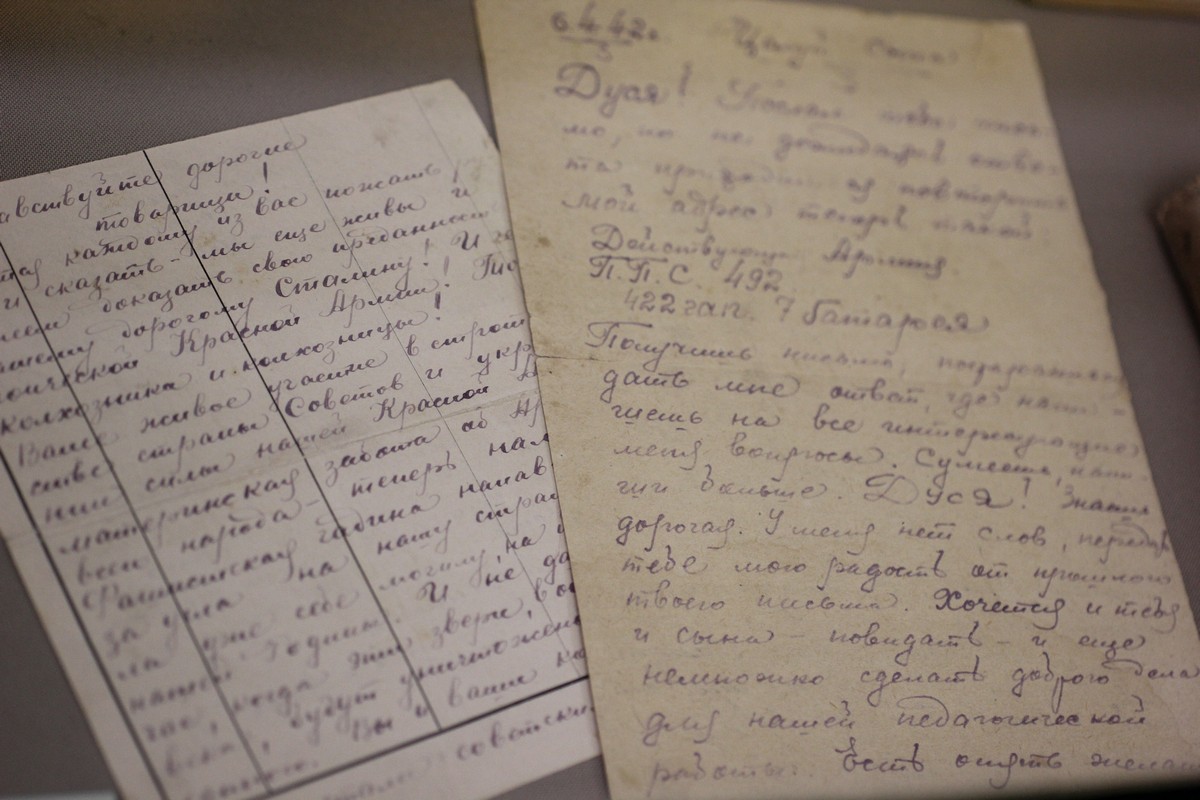 авствуйте дорогие
товарищи!
каждому из вас пожать
и сказать - мы еще живы и
доказать свою преданность
нашему дорогому Сталину! И
Красной Армии!
колхозника и колхозницы!
Ваше живое участие в строит
стве страны Советов и укр
нии силы нашей Красной А
материнская забота об Ар
всего народа - теперь нам
Фашистская гадина напав
на нашу стран
ла уже себе могилу, на
нашей Родины. И не да
час, когда эти звери, во
будут уничтожены
Вы и ваши ко
советски
6 4.42г.
Целую Саша
Дуся! Послал тебе пись-
мо, но не
та приходится повторить
мой адрес теперь такой
Действующая Армия.
П.П.С. 492
422 гап. 7 батарея
Получишь письмо,
дать мне ответ, где напи-
шешь на все интересующие
меня вопросы. Сумеешь, напи-
ши больше. Дуся! Знаешь
дорогая. У меня нет слов, передать
тебе мою радость от прошлого
твоего письма. Хочется и тебя
и сына - повидать - и еще
немножко сделать доброго дела
для нашей педагогической
работы. Есть опять желан